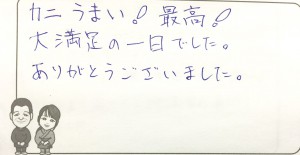 カニうまい! 最高!
大満足の一日でした。
ありがとうございました。